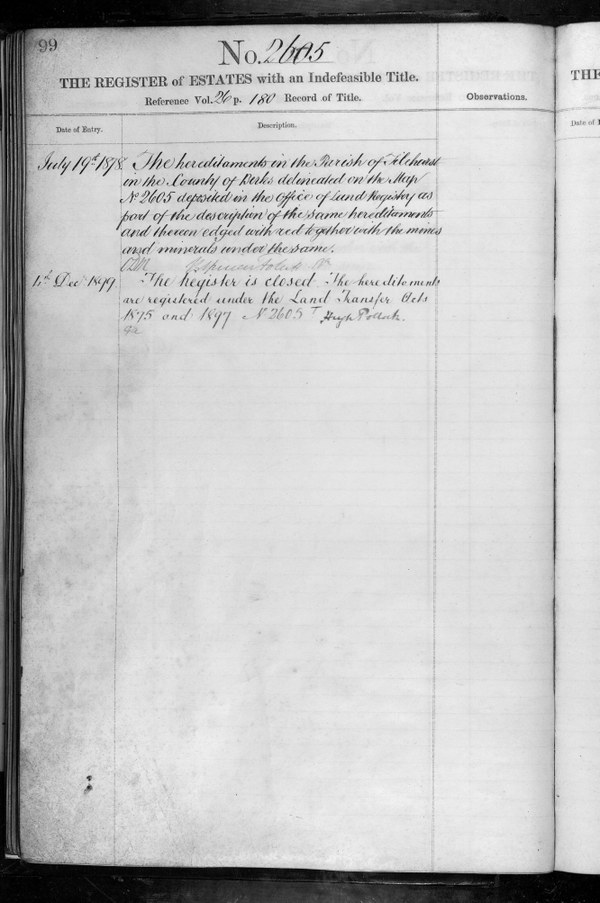 99
No. 2605
THE REGISTER of ESTATES with an Indefeasible Title.
Reference Vol. 26 p. 180 Record of Title.
Observations.
Date of Entry.
Description.
July 19th 1878. The hereditaments in the Parish of Tilehurst
in the County of Berks delineated on the Map
No 2605 deposited in the Office of Land Registry as
part of the description of the same hereditaments
and thereon edged with red together with the mines
and minerals under the same.
4th Dec 1899 The Register is closed. The hereditaments
are registered under the Land Transfer Acts
1875 and 1897 No 2605 T Hugh Pollock.
THE
Date of E